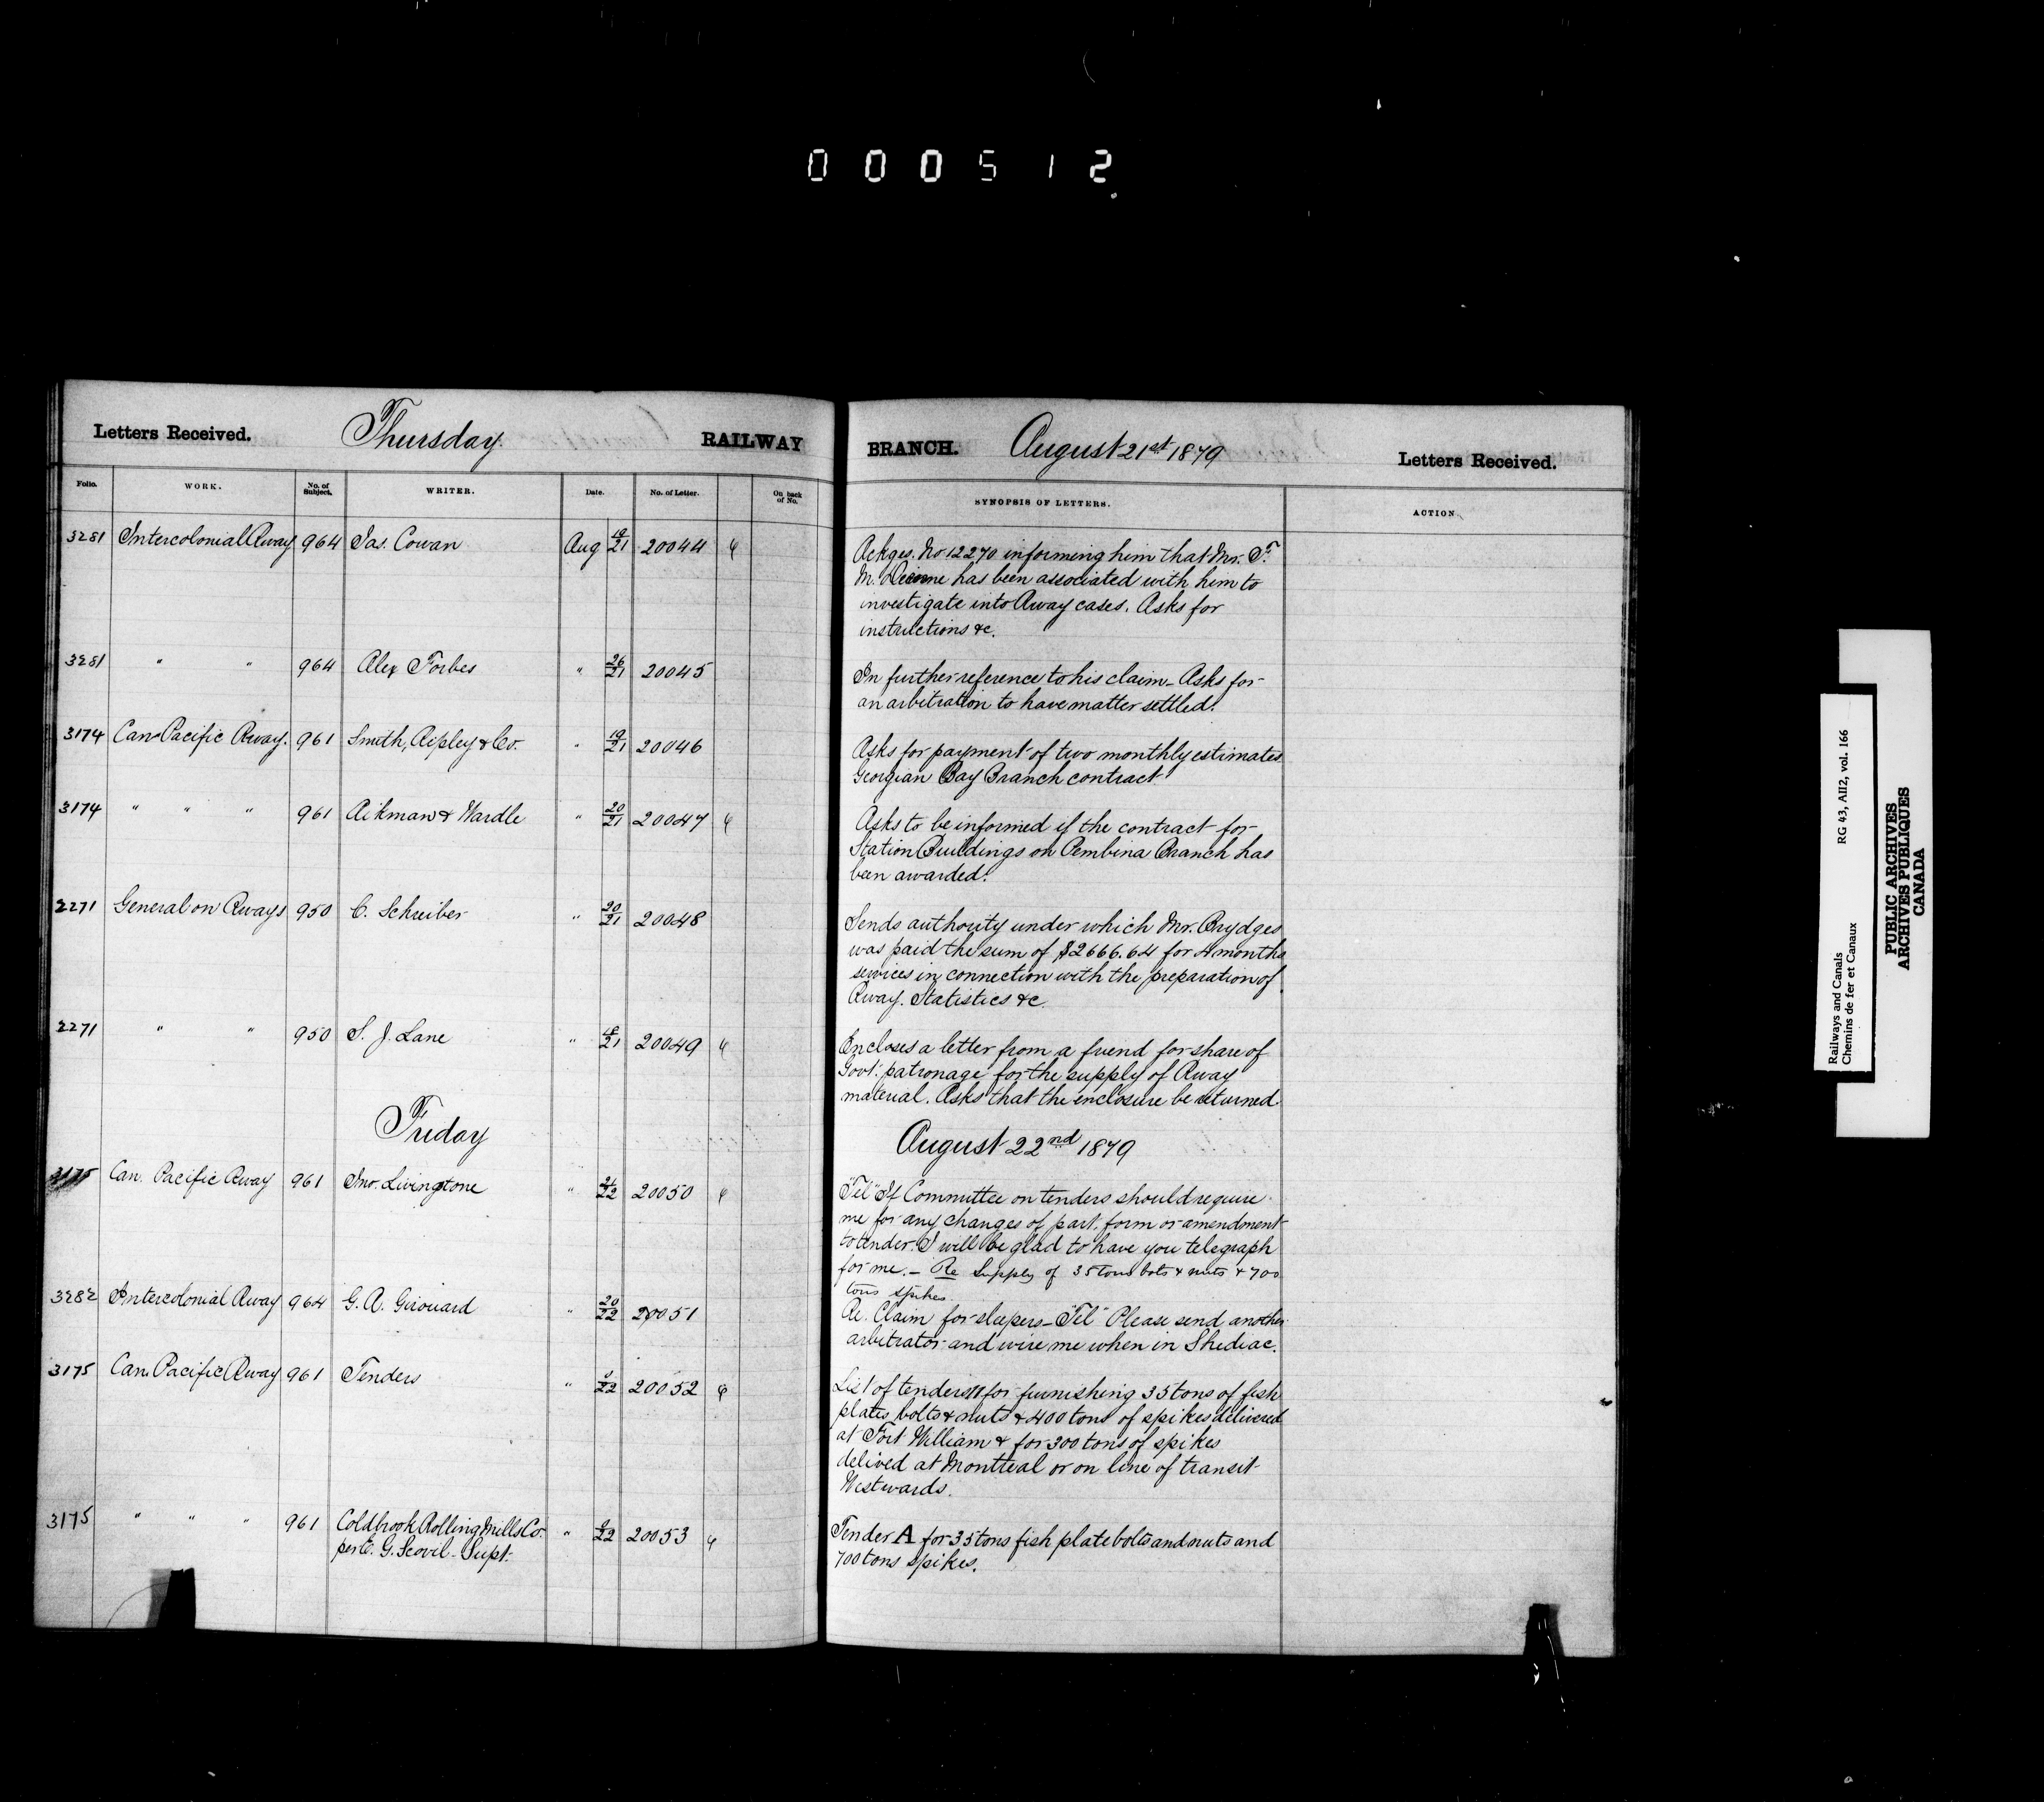 000512
Letters Received. Thursday. RAILWAY
Folio. WORK. No. of Subject. WRITER. Date. No. of Letter. On back of No.
3281 Intercolonial Rway 964 Jas. Cowan Aug 18/21 20044
3281 " " 964 Alex Forbes " 26/21 20045
3174 Can Pacific Rway. 961 Smith, Ripley & Co. " 19/21 20046
3174 " " " 961 Aikman & Wardle " 20/21 20047
2271 General on Rways 950 C. Schreiber " 20/21 20048
2271 " " 950 S. J. Lane " 18/21 20049
Friday
3175 Can. Pacific Rway 961 Jno. Livingstone " 21/22 20050
3282 Intercolonial Rway 964 G. A. Girouard " 20/22 20051
3175 Can. Pacific Rway 961 Tenders " /22 20052
3175 " " " 961 Coldbrook Rolling Mills Co. " /22 20053
per E. G. Scovil - Supt.
BRANCH. August 21st 1879 Letters Received.
SYNOPSIS OF LETTERS. ACTION
Ackges. No 12270 informing him that Mr. F.
M. has been associated with him to
investigate into Rway cases. Asks for
instructions &c.
In further reference to his claim - Asks for
an arbitration to have matter settled.
Asks for payment of two monthly estimates
Georgian Bay Branch contract
Asks to be informed if the contract for
Station Buildings on Pembina Branch has
been awarded.
Sends authority under which Mr. Brydges
was paid the sum of $2666.64 for 4 months
services in connection with the preparation of
Rway. Statistics &c.
Encloses a letter from a friend for share of
Govt. patronage for the supply of Rway
material. Asks that the enclosure be returned
August 22nd 1879
"Tel" If Committee on tenders should require
me for any changes of part. form or amendment
to tender. I will be glad to have you telegraph
for me. - Re Supply of 35 tons bots & nuts & 700
tons spikes.
Re. Claim for sleepers - "Tel" Please send another
arbitrator and wire me when in Shediac.
List of tenders for furnishing 35 tons of fish
plates, bolts & nuts & 400 tons of spikes delivered
at Fort William & for 300 tons of spikes
delived at Montreal or on line of transit
Westwards.
Tender A for 35 tons fish plate bolts and nuts and
700 tons spikes.
Railways and Canals RG 43, AII2, vol. 166
Chemins de fer et Canaux
PUBLIC ARCHIVES
ARCHIVES PUBLIQUES
CANADA